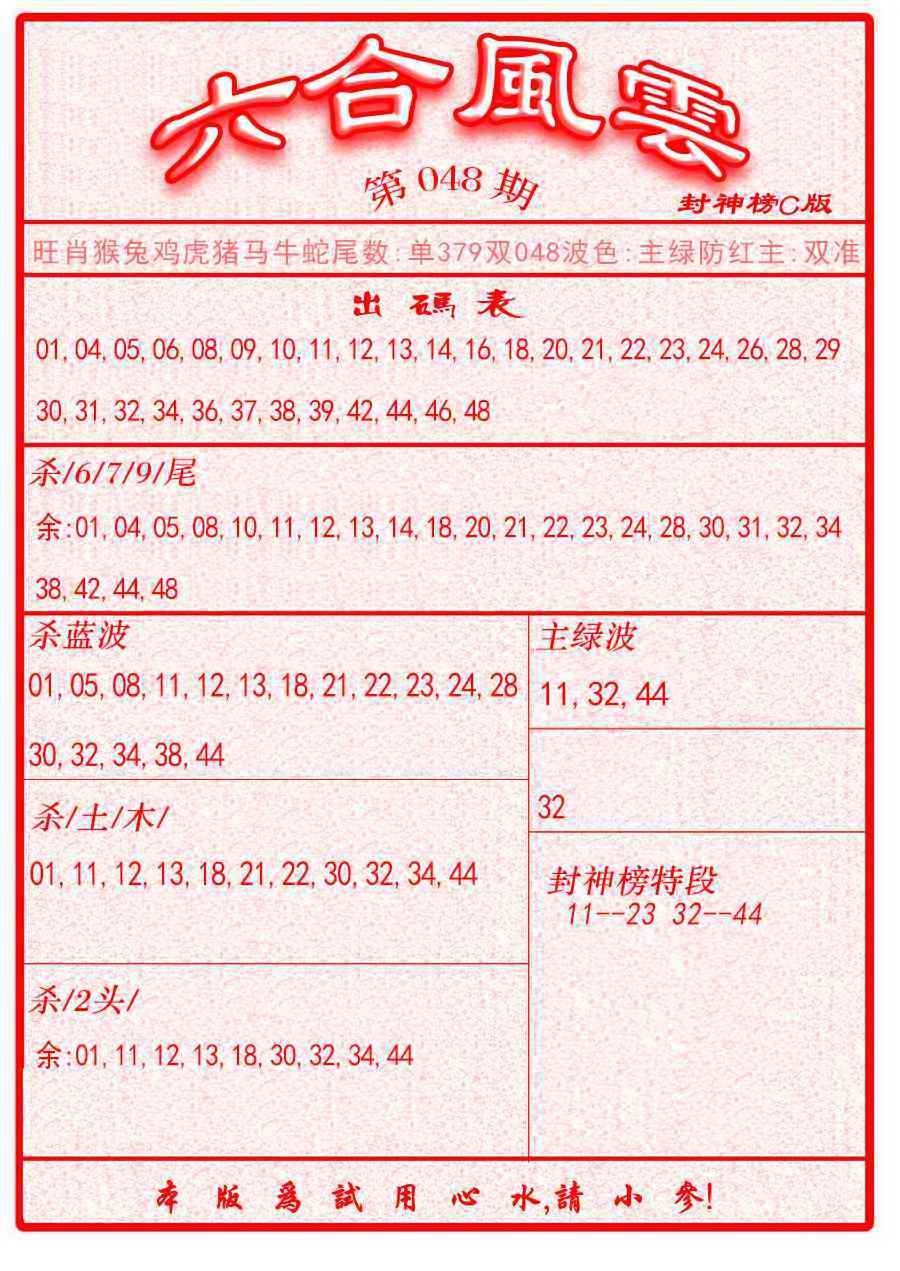 六合風雲
第048期
封神榜C版
旺肖猴兔鸡虎猪马牛蛇尾数:单379双048波色:主绿防红主:双准
出碼表
01,04,05,06,08,09,10,11,12,13,14,16,18,20,21,22,23,24,26,28,29
30,31,32,34,36,37,38,39,42,44,46,48
杀/6/7/9/尾
余:01,04,05,08,10,11,12,13,14,18,20,21,22,23,24,28,30,31,32,34
38,42,44,48
杀蓝波
01,05,08,11,12,13,18,21,22,23,24,28
30,32,34,38,44
主绿波
11,32,44
32
杀/土/木/
01,11,12,13,18,21,22,30,32,34,44
封神榜特段
11--23 32--44
杀/2头/
余:01,11,12,13,18,30,32,34,44
本版爲試用心水,請小參!